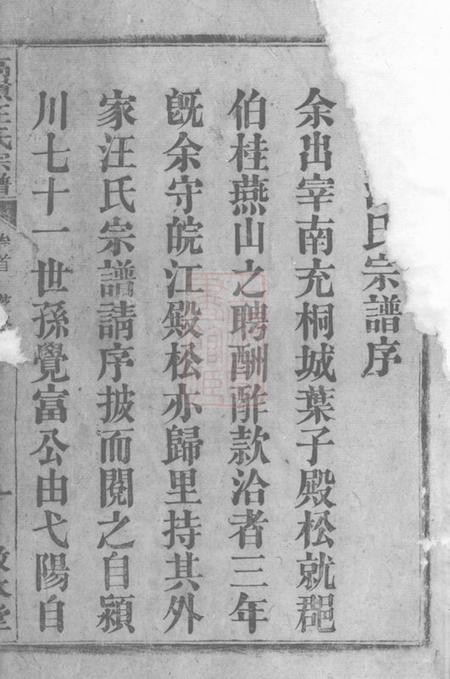 汪氏宗譜序
余出宰南充桐城葉子殿松就郡
伯桂燕山之聘酬酢款洽者三年
旣余守皖江殿松亦歸里持其外
家汪氏宗譜請序披而閱之自潁
川七十一世孫覺富公由弋陽自
汪氏宗譜
卷首
一